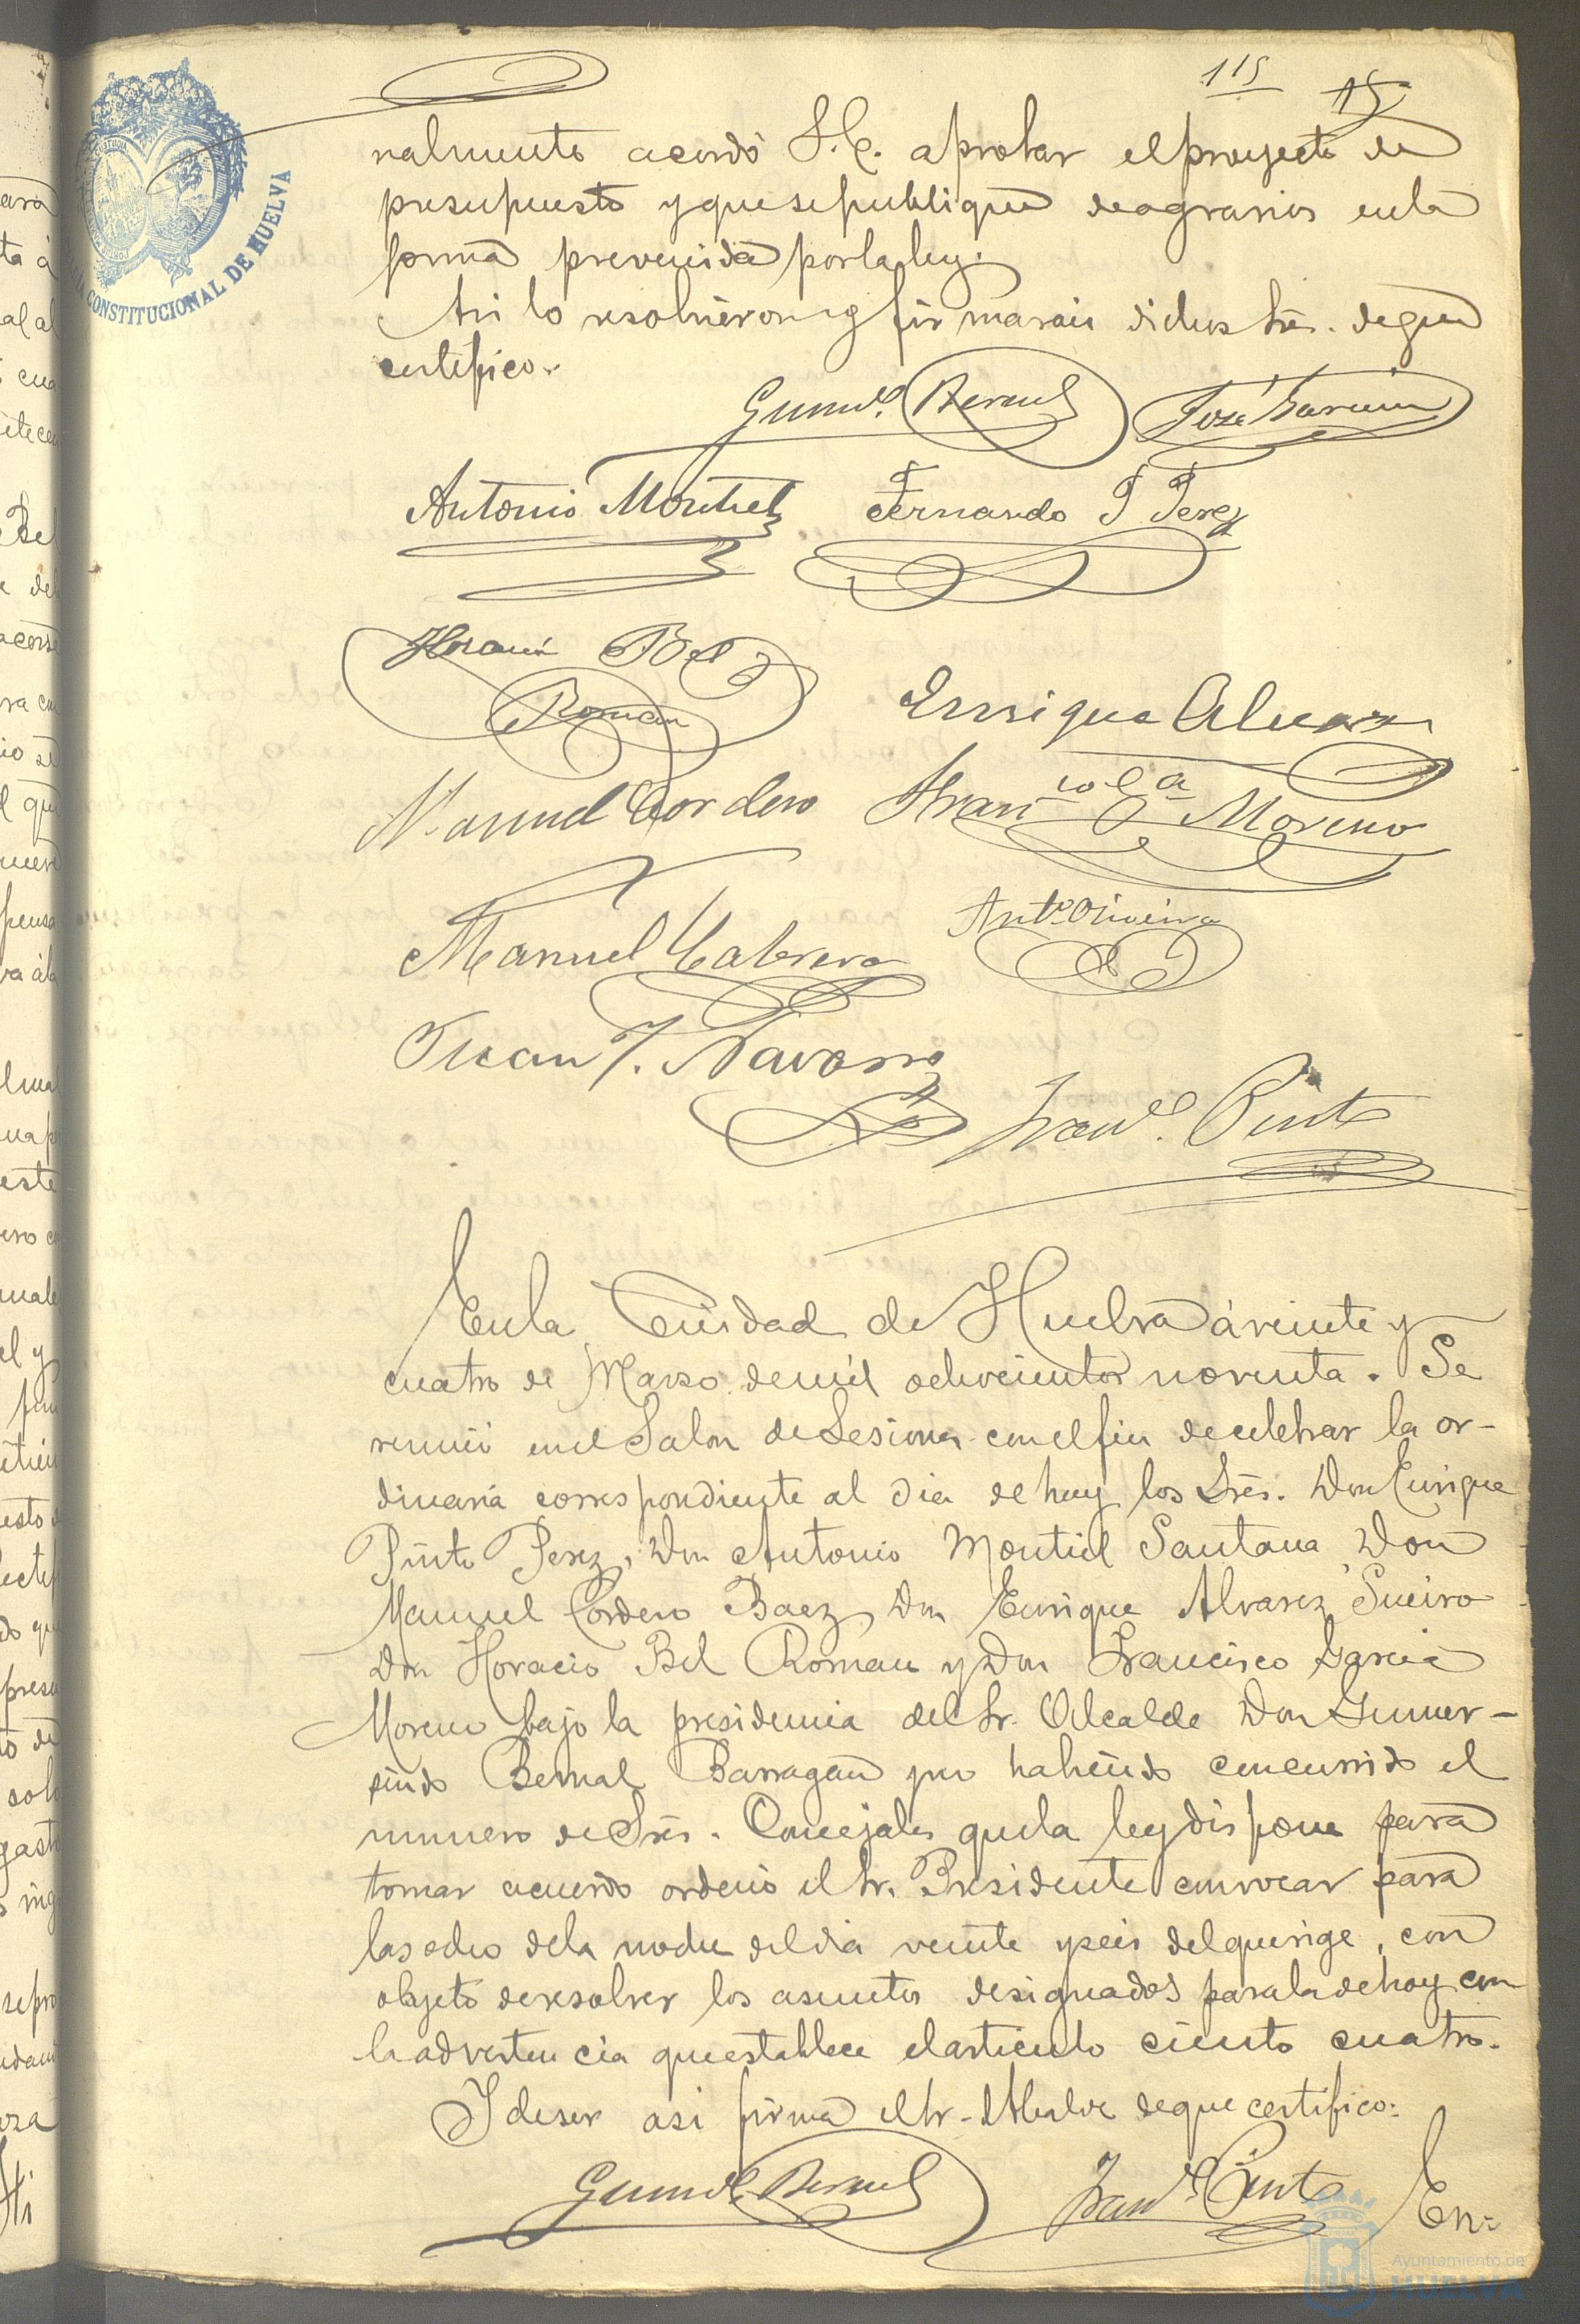 115 15
nalmente acordó S.E. aprobar el proyecto de
presupuesto y que se publique de agravios en la
forma prevenida por la ley.
Asi lo resolvieron y firmaran dichos Sres. de que
certifico.
Gumdo. Bernal José Garcia
Antonio Montiel Fernando P Perez
Horacio Bel
Roman
Enrique Alvarez
Manuel Cordero Franco Ga Moreno
Manuel Cabrera Anto. Oliveira
Juan J. Navarro
Franco. Pinto
En la Ciudad de Huelva á veinte y
cuatro de Marzo de mil ochocientos noventa. Se
reunió en el Salon de Sesiones con el fin de celebrar la or-
dinaria correspondiente al dia de hoy los Sres. Don Enrique
Pinto Perez, Don Antonio Montiel Santana Don
Manuel Cordero Baez, Don Enrique Alvarez Sueiro
Don Horacio Bel Roman y Don Francisco Garcia
Moreno bajo la presidencia del Sr. Alcalde Don Gumer-
sindo Bernal Barragan y no habiendo concurrido el
numero de Sres. Concejales que la ley dispone para
tomar acuerdo ordenó el Sr. Presidente convocar para
las ocho de la noche del dia veinte y seis del que rige, con
objeto de resolver los asuntos designados para la de hoy con
la advertencia que establece el articulo ciento cuatro.
Y de ser asi firma el Sr. Alcalde de que certifico:
Gumdo. Bernal Franco. Pinto En=
CONSTITUCIONAL DE HUELVA
Ayuntamiento de
HUELVA